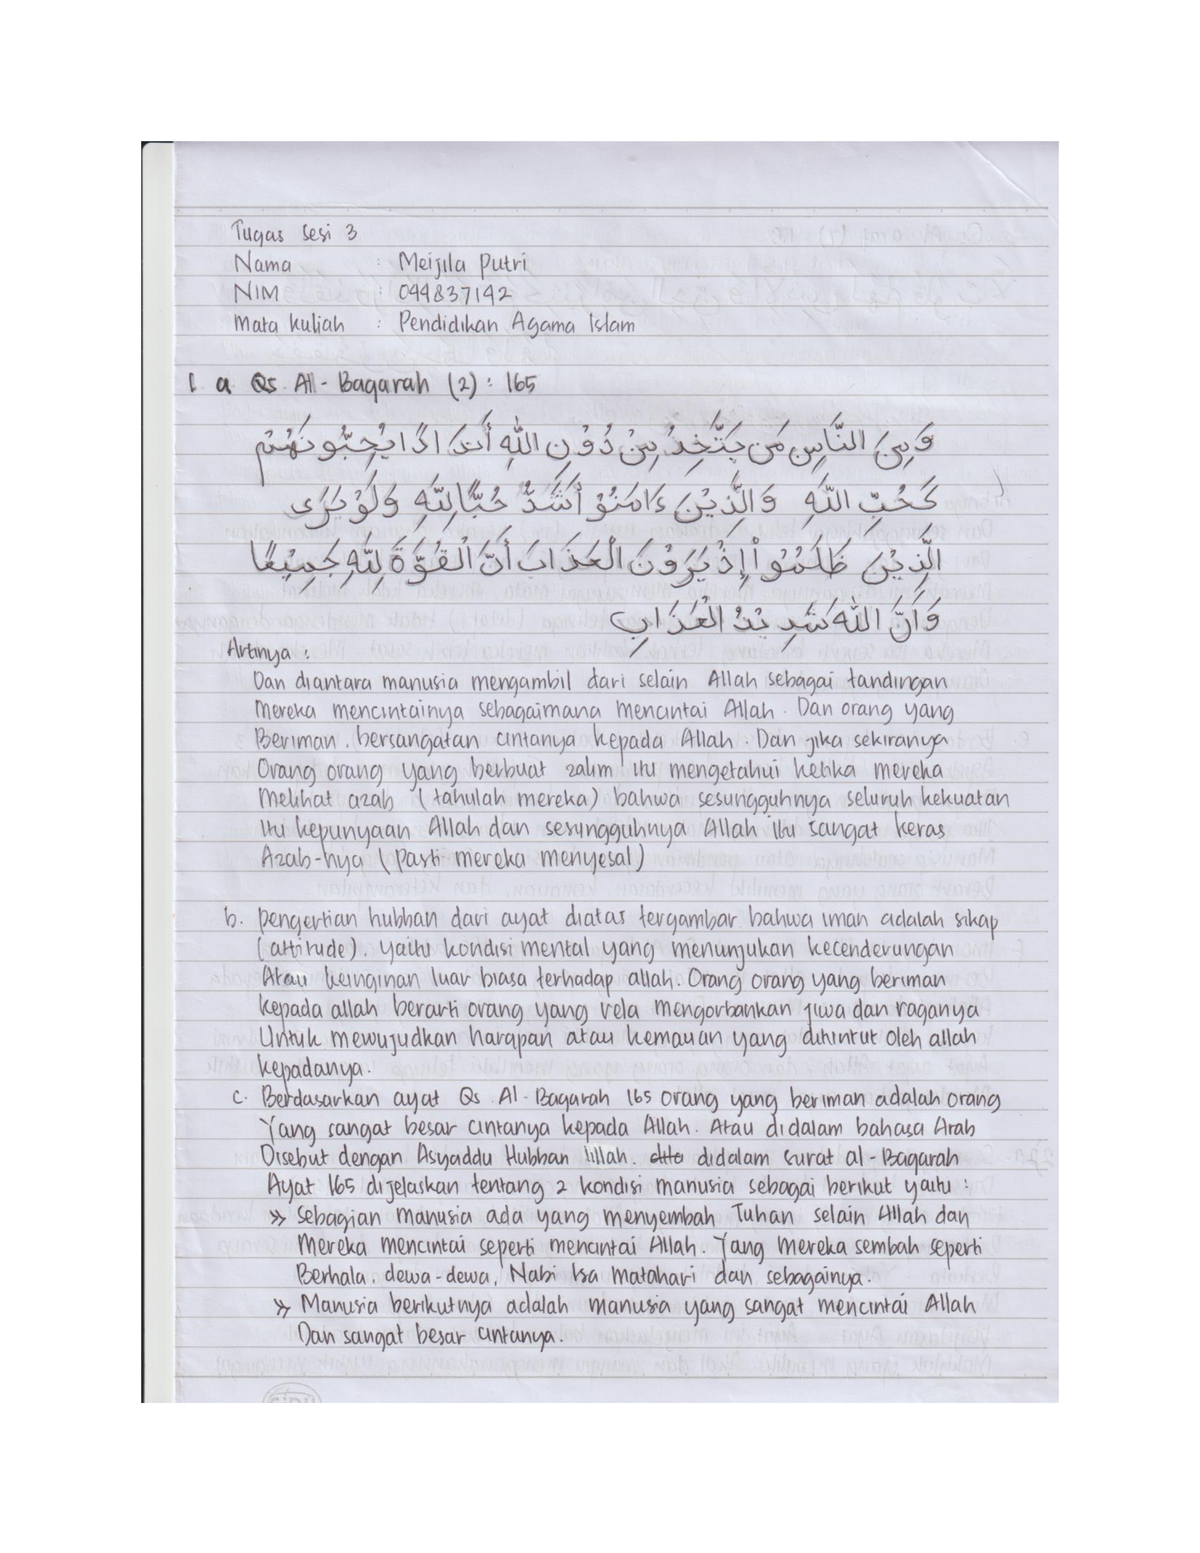 Tugas Sesi 3
Nama : Meijila Putri
NIM : 044837142
Mata kuliah : Pendidikan Agama Islam
1. a Qs. Al - Baqarah (2) : 165
وَمِنَ النَّاسِ مَن يَتَّخِذُ مِنْ دُوْنِ اللّٰهِ أَندَادًا يُحِبُّونَهُمْ
كَحُبِّ اللّٰهِ وَالَّذِيْنَ ءَامَنُوْ أَشَدُّ حُبًّا لِلّٰهِ وَلَوْ يَرَى
الَّذِيْنَ ظَلَمُوْا إِذْ يَرَوْنَ الْعَذَابَ أَنَّ الْقُوَّةَ لِلّٰهِ جَمِيْعًا
وَأَنَّ اللّٰهَ شَدِيْدُ الْعَذَابِ
Artinya :
Dan diantara manusia mengambil dari selain Allah sebagai tandingan
Mereka mencintainya sebagaimana mencintai Allah. Dan orang yang
Beriman, bersangatan cintanya kepada Allah. Dan jika sekiranya
Orang orang yang berbuat zalim itu mengetahui ketika mereka
Melihat azab (tahulah mereka) bahwa sesungguhnya seluruh kekuatan
Itu kepunyaan Allah dan sesungguhnya Allah itu sangat keras
Azab-nya (pasti mereka menyesal)
b. pengertian hubban dari ayat diatas tergambar bahwa iman adalah sikap
(attitude), yaitu kondisi mental yang menunjukan kecenderungan
Atau keinginan luar biasa terhadap allah. Orang orang yang beriman
kepada allah berarti orang yang rela mengorbankan jiwa dan raganya
Untuk mewujudkan harapan atau kemauan yang dituntut oleh allah
kepadanya.
c. Berdasarkan ayat Qs. Al-Baqarah 165 orang yang beriman adalah orang
Yang sangat besar cintanya kepada Allah. Atau didalam bahasa Arab
Disebut dengan Asyaddu Hubban lillah. didalam surat al-Baqarah
Ayat 165 dijelaskan tentang 2 kondisi manusia sebagai berikut yaitu :
>> Sebagian manusia ada yang menyembah Tuhan selain Allah dan
Mereka mencintai seperti mencintai Allah. Yang mereka sembah seperti
Berhala, dewa-dewa, Nabi Isa matahari dan sebagainya.
>> Manusia berikutnya adalah manusia yang sangat mencintai Allah
Dan sangat besar cintanya.